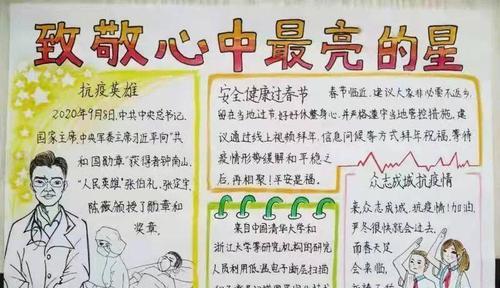 致敬心中最亮的星
抗疫英雄
2020年9月8日,中共中央总书记,
国家主席,中央军委主席习近平向"共
和国勋章"获得者钟南山,
"人民英雄"张伯礼、张定宇、
陈薇颁授了勋章和
奖章.
安全健康过春节
春节临近,建议大家非必要不返乡,
留在当地过节,好好休整身心,并严格遵守当地管控措施,建
议通过线上视频拜年、信息问候等方式拜年祝福,等待
疫情形势缓解和平稳之
后,再相聚!平安是福.
来自中国清华大学和
浙江大学等研究机构的研究
人员利用低温电子断层扫描
众志成城抗疫情
亲,众志成城,抗疫情!加油,
严冬很快就会过去,
而春天足
会来临,